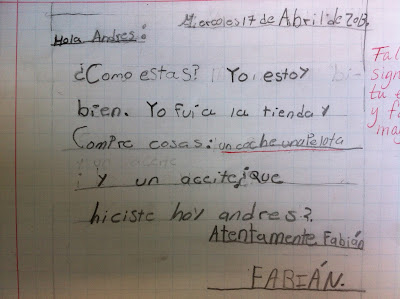 Miercoles 17 de Abril de 2013
Hola Andres:
¿Como estas? Yo, estoy bi-
bien. Yo fui a la tienda y
Compre cosas: un coche una Pelota
y un aceite
¡ y un aceite¿que
hiciste hoy andres?
Atentamente Fabián
FABIÁN.
Fal
sign
tu e
y fa
may